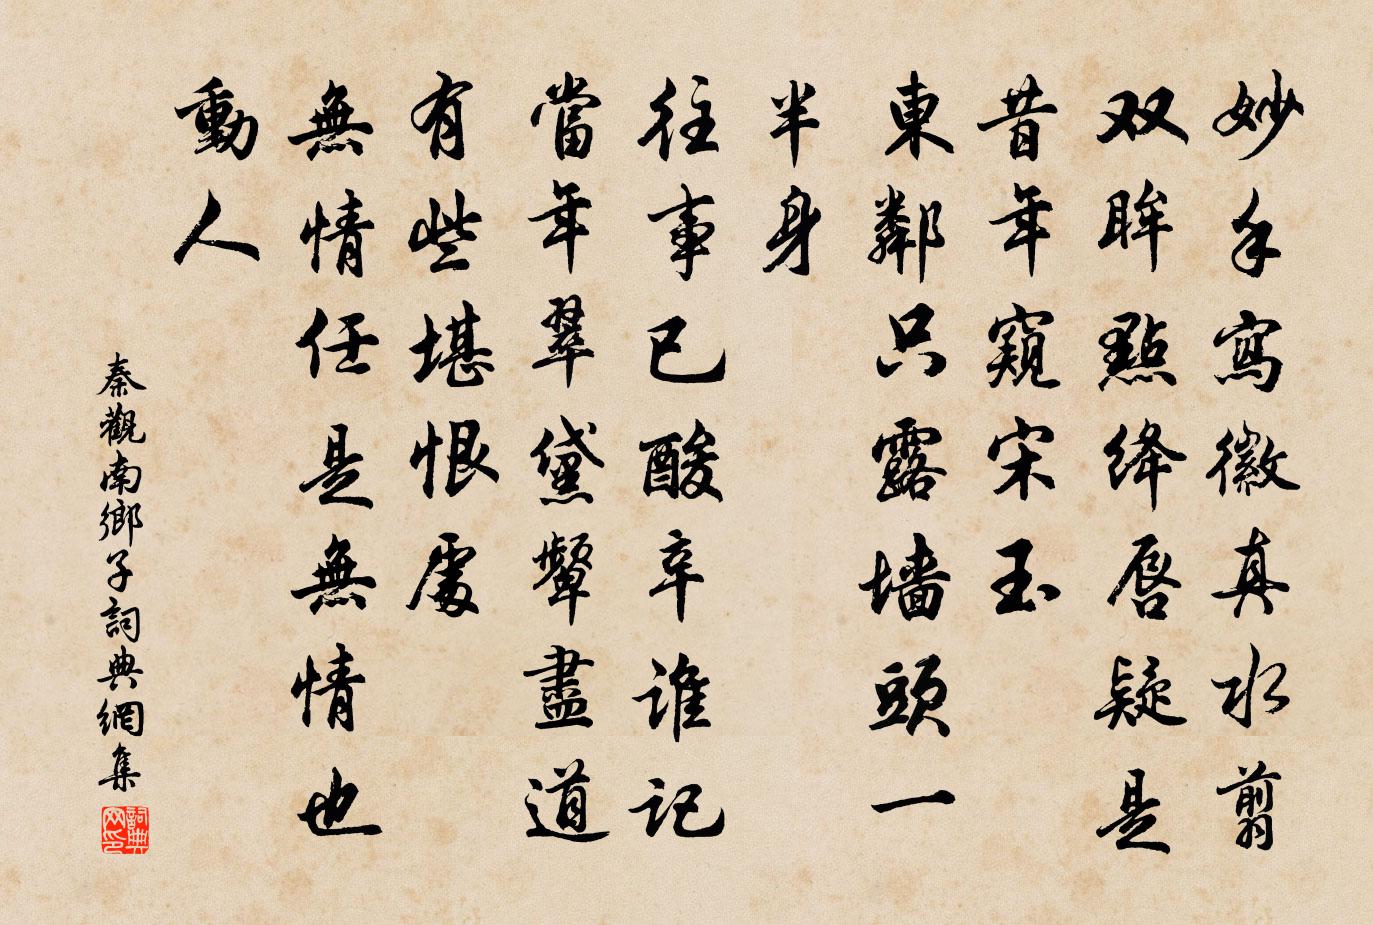 妙手寫徽真水剪
双眸點绛唇疑是
昔年窺宋玉
東鄰只露墙頭一
半身
往事已酸辛谁记
當年翠黛顰盡道
有些堪恨處
無情任是無情也
動人
秦觀南鄉子詞典網集
詞典网印